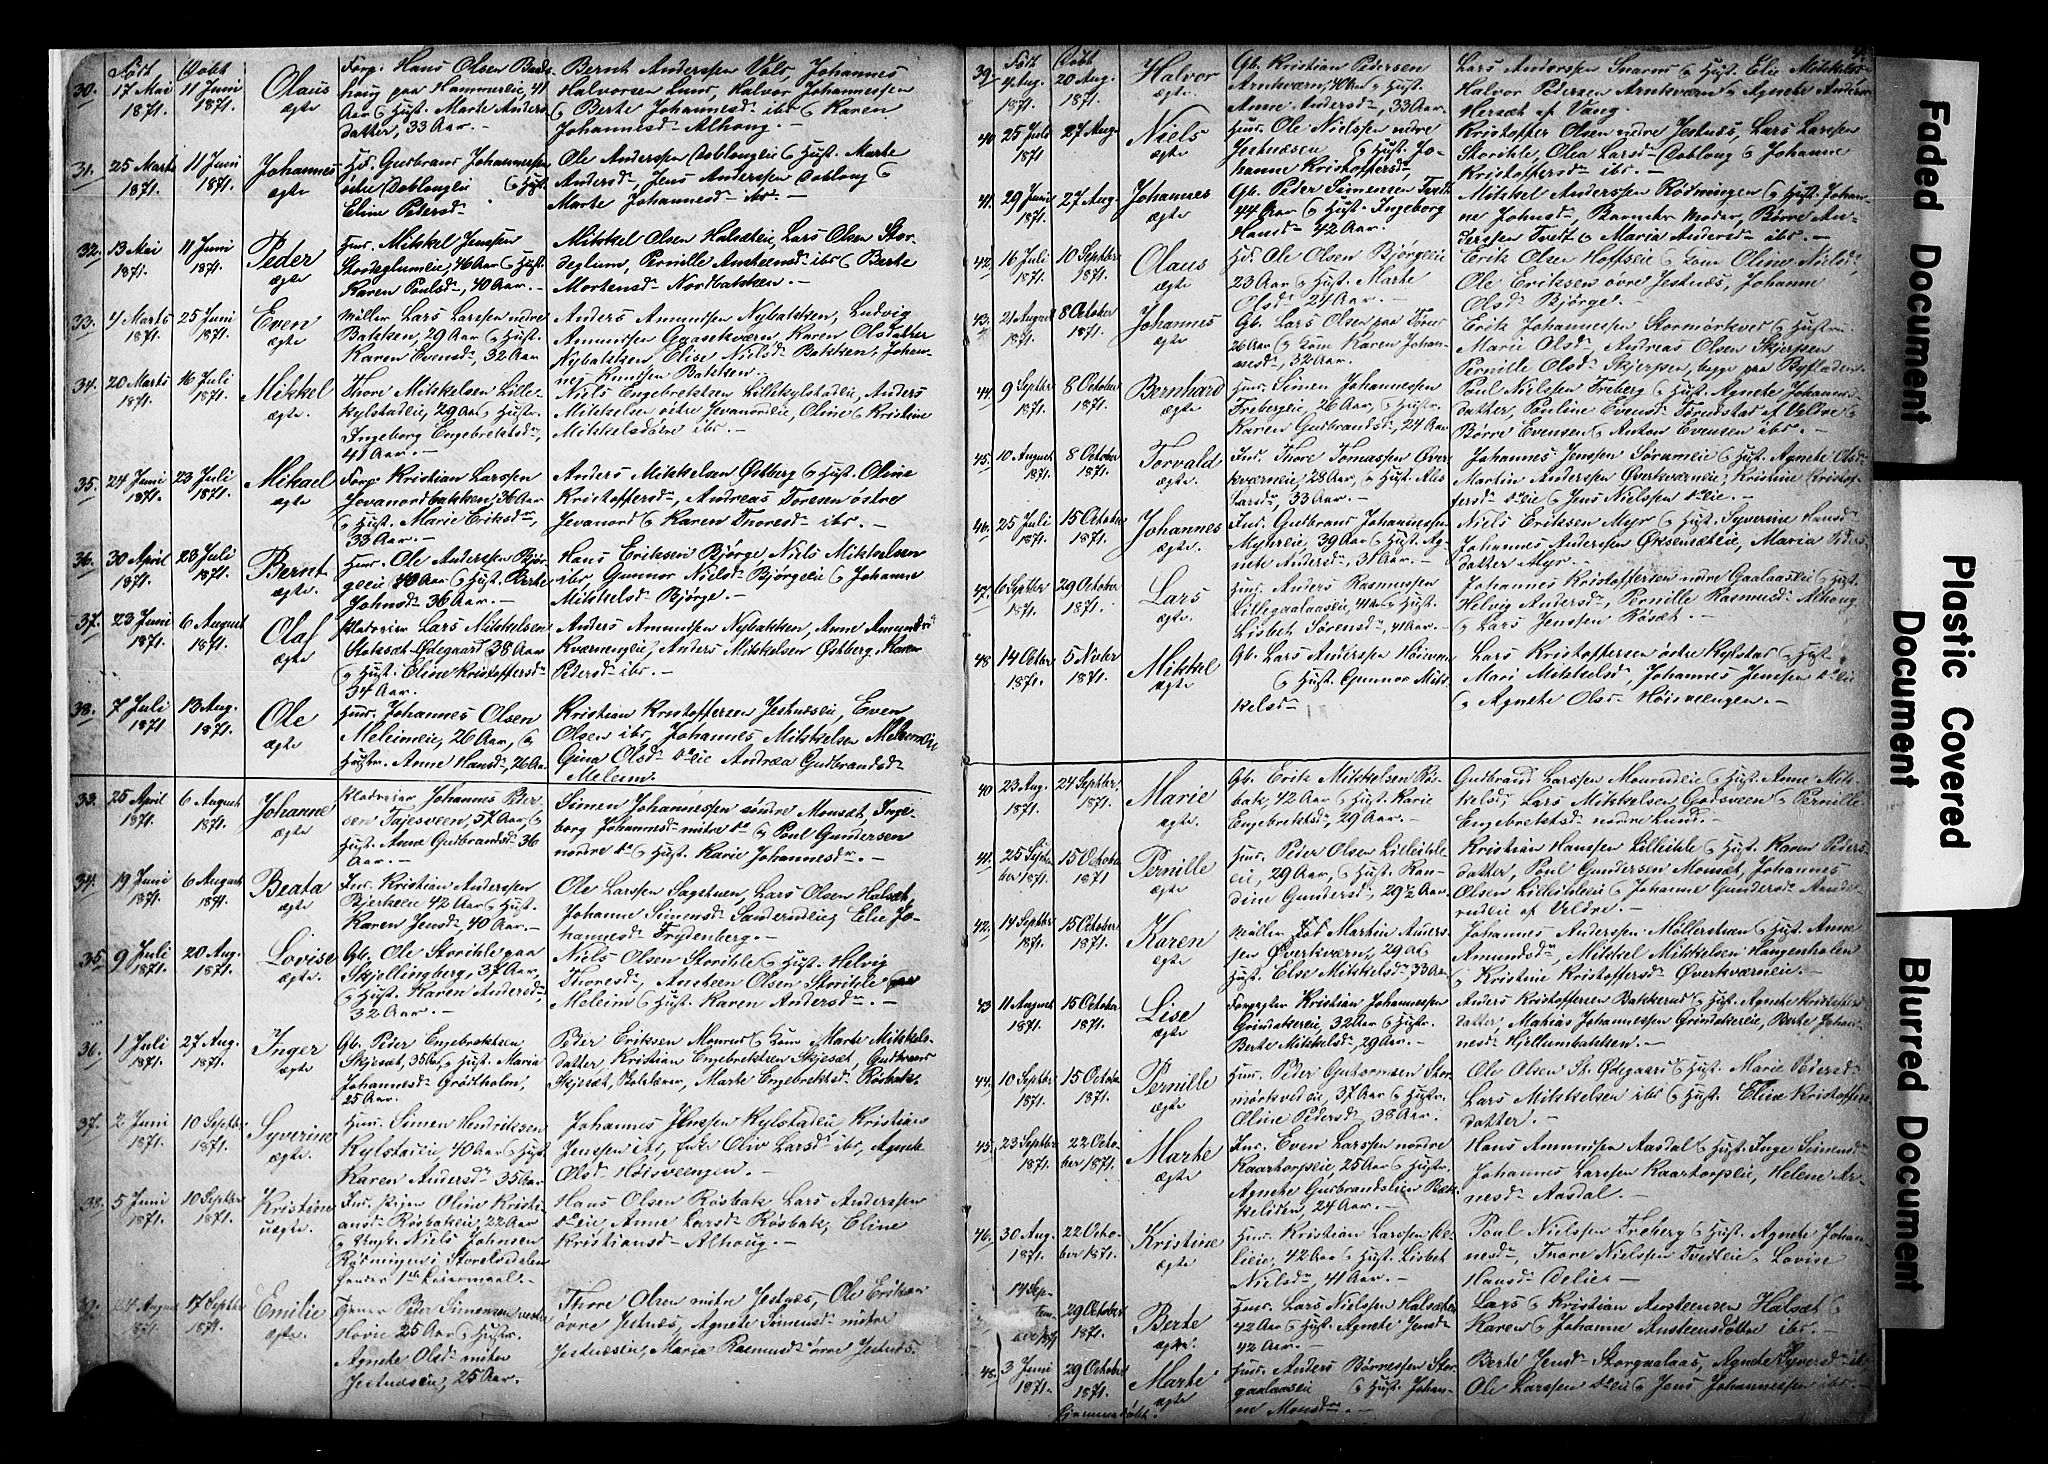 Født Døbt
30. 17 Mai 1871. 11 Juni 1871. Olaus ægte
Forp. Hans Olsen
haug paa Hammerlie, 41
Aar & Hust. Marte Anders
datter, 33 Aar. —
Bernt Anderssen Vols, Johannes
Halvorsen Lund, Halvor Johannessen
& Berte Johannesd. ibr & Karen
Johannesd. Alhoug. —
31. 25 Marts 1871. 11 Juni 1871. Johannes ægte
Hd. Gudbrand Johannessen
østre Doblouglie & Hust.
Eline Pedersd. —
Ole Anderssen Doblouglie & Hust. Marte
Andersd., Jens Anderssen Dobloug &
Marte Johannesd. ibr. —
32. 13 Mai 1871. 11 Juni 1871. Peder ægte
Hus. Mikkel Jenssen
Stordeglumlie, 46 Aar & Hust.
Karen Poulsd., 40 Aar. —
Mikkel Olsen Halsætlie, Lars Olsen Stor-
deglum, Pernille Amtsensd. ibr & Berte
Mortensd. Nordbakken. —
33. 4 Marts 1871. 25 Juni 1871. Even ægte
Møller Lars Larssen nedre
Bakken, 29 Aar & Hust.
Karen Evensd., 32 Aar
Anders Amundsen Nybakken, Ludvig
Amundsen Gaasekværn Karen Olsdatter
Nybakken Elise Nielsd. Bakken, Johan-
nes Knudsen Bakken. —
34. 20 Marts 1871. 16 Juli 1871. Mikkel ægte
Thore Mikkelsen Lille-
kylstadlie, 29 Aar & Hustr.
Ingeborg Engebretsd.,
41 Aar. —
Niels Engebretsen Lillekylstadlie, Anders
Mikkelsen østre Jevanordlie, Oline & Kristine
Mikkelsdøtre ibr. —
35. 24 Juni 1871. 23 Juli 1871. Mikael ægte
Forp. Kristian Larssen
Jevanordbakken, 36 Aar
& Hust. Marie Eriksd.,
33 Aar. —
Anders Mikkelsen Østberg & Hust. Oline
Kristoffersd., Andreas Toresen østre
Jevanord & Karen Thoresd. ibr. —
36. 30 April 1871. 23 Juli 1871. Bernt ægte
Hus. Ole Anderssen Bjør-
gelie Aar & Hust. Berte
Johnsd. 36 Aar. —
Hans Eriksen Bjørge Niels Mikkelsen
ibr, Gunnor Nielsd. Bjørgelie & Johanne
Mikkelsd. Bjørge. —
37. 23 Juni 1871. 6 August 1871. Olaf ægte
Kladreier Lars Mikkelsen
Stoksæt-Ødegaard 38 Aar
& Hust. Eline Kristoffersd.
34 Aar. —
Anders Amundsen Nybakken, Anne Amundsd.
Kværnenglie, Anders Mikkelsen Østberg, Karen
Pedersd. ibr. —
38. 7 Juli 1871 13 Aug. 1871. Ole ægte
Hus. Johannes Olsen
Meleimlie, 26 Aar, &
Hustr. Anne Hansd., 26 Aar
Kristian Kristoffersen Jestnæslie, Even
Olsen ibr, Johannes Mikkelsen Meleimlie
Gina Olsd. do lie Andrea Gudbrandsd.
Meleim. —
33. 25 April 1871. 6 August 1871. Johanne ægte
Kladreier Johannes Peder-
sen Tajesveen, 57 Aar &
Hust. Anne Gudbrandsd. 36
Aar. —
Simen Johannessen søndre Mousæt, Inge-
borg Johannesd. mitre do & Poul Gundersen
nordre do & Hust. Karie Johannesd. —
34. 19 Juni 1871. 6 August 1871. Beata ægte
Ind. Kristian Anderssen
Bjerkelie 42 Aar & Hust.
Karen Jensd., 40 Aar. —
Ole Larssen Sagstuen, Lars Olsen Halsæt,
Johanne Simensd. Sanderudlie, Elie Jo-
hannesd. Frydenberg. —
35. 9 Juli 1871. 20 Aug. 1871. Lovise ægte
Gb. Ole Storihle paa
Skjellingberg, 37 Aar,
& Hust. Karen Andersd.,
32 Aar. —
Niels Olsen Storihle & Hust. Helvig
Thoresd., Amtsen Olsen Storihle paa
Meleim & Hust. Karen Andersd. —
36. 1 Juli 1871. 27 Aug. 1871. Inger ægte
Gb. Peder Engebretsen
Skjesæt, 35 Aar & Hust. Maria
Johannesd. Grøtholm,
25 Aar.
Peder Eriksen Mourud & Marte Mikkels-
datter Kristian Engebretsen Skjesæt, Gudbrand
Skjesæt, Skolelærer, Marte Engebretsd. Rosbak.
37. 2 Juni 1871. 10 Septbr 1871. Syverine ægte
Hus. Simen Hendriksen
Kylstadlie, 40 Aar & Hust.
Karen Andersd. 35 Aar
Johannes Jenssen Kylstadlie Kristian
Jenssen ibr, Oliv Larsd. ibr, Agnete
Olsd. Høisveengen. —
38. 5 Juni 1871. 10 Septbr 1871. Kristine uægte
Ind. Pigen Oline Kristi-
ansd. Rosbaklie, 22 Aar
& Ungk. Niels Johnsen
Rødningen i Storelvdalen
hendes 1ste Leiermaal. —
Hans Olsen Rosbak Lars Anderssen
do lie, Anne Larsd. Rosbak, Eline
Kristiansd. Alhoug. —
4 August 1871. 17 Septbr 1871. Emilie ægte
Peder Simensen vestre
Hovie 25 Aar & Hustr.
Agnete Olsd. mitre
Jestnæslie, 25 Aar. —
Thore Olsen mitre Jestnæs, Ole Eriksen
øvre Jestnæs, Agnete Simensd. mitre
Jestnæslie, Maria Rasmusd. øvre Jestnæs.
Født Døbt
39. 4 Aug. 1871. 20 Aug. 1871. Halvor ægte
Gb. Kristian Pedersen
Arnkværn, Aar & Hust.
Anne Andersd., 33 Aar
Lars Anderssen Snarud & Hust. Elie Mikkelsd.
Halvor Pedersen Arnkværn & Agnete Andersd.
Hersæt af Vang.
40. 25 Juli 1871 27 Aug. Niels ægte
Hus. Ole Nielssen nedre
Jestnæsen & Hust. Jo-
hanne Kristoffersd.,
Kristoffer Olsen nedre Jestnæs, Lars Larssen
Storihle, Olea Larsd. Doblong & Johanne
Kristoffersd. ibr. —
41. 29 Juni 1871. 27 Aug. Johannes ægte
Gb. Peder Simensen Tvedt
44 Aar & Hust. Ingeborg
Hansd. 42 Aar.
Mikkel Anderssen Rødningen & Hust. Johan-
ne Johnsd., Barnets Moder, Børre An-
derssen Tvedt & Maria Andersd. ibr. —
42. 16 Juli 1871. 10 Septbr 1871. Olaus ægte
Hd. Ole Olsen Bjørgelie
23 Aar & Hust. Marte
Olsd. 24 Aar. —
Erik Olsen Hoffslie & Oline Nielsd.,
Ole Eriksen øvre Jestnæs, Johanne
Olsd. Bjørge. —
43. 21 August 1871. 8 October 1871. Johannes ægte
Gb. Lars Olsen paa
26 Aar & Karen Johan-
nesd., 32 Aar.
Erik Johannessen Stormørkved & Hustru
Marie Olsd., Andreas Olsen Skjerpen
Pernille Olsd. Skjerpen, begge paa Byfladen
44. 9 Septbr 1871. 8 October 1871. Bernhard ægte
Hus. Simen Johannessen
Frebergeie, 26 Aar, & Hust.
Karen Gudbrandsd., 24 Aar
Poul Nielsen Freberg & Hust. Agnete Johannes-
datter, Pauline Evensd. Torudstad af Veldre &
Børre Evensen & Anton Evensen ibr. —
45. 10 August 1871. 8 October 1871. Torvald ægte
Ind. Thore Tomassen Øver-
kværnlie, 28 Aar, & Hust.
Larsd., 33 Aar. —
Johannes Jenssen Sorumlie & Hust. Agnete Olsd.
Martin Anderssen Øverkværnlie, Kristine Kristof-
fersd. do lie & Jens Nielssen do lie. —
46. 25 Juli 1871. 15 October 1871. Johannes ægte
Ind. Gudbrand Johannessen
Myhrlie, 39 Aar & Hust. Ag-
nete Andersd., 31 Aar. —
Niels Eriksen Myr & Hust. Syverine Hansd.
Johannes Anderssen Øksensætlie, Maria Peders-
datter Myr. —
47. 6 Septbr 1871. 29 October 1871. Lars ægte
Hus. Anders Rasmussen
Lillegaalaaslie, 44 Aar & Hust.
Lisbet Sørensd., 41 Aar.
Johannes Kristoffersen nedre Gaalaaslie & Hust.
Helvig Andersd., Pernille Rasmusd. Alhoug
& Lars Jenssen Røsæt. —
48 14 Octbr 1871. 5 Novbr 1871. Mikkel ægte
Gb. Lars Anderssen Høisveen
& Hust. Gunnor Mik-
kelsd. —
Lars Kristoffersen østre Kylstad & Hust.
Mari Mikkelsd., Johannes Jenssen do lie
& Agnete Olsd. Høisveengen. —
40 23 Aug. 1871. 24 Septbr. 1871. Marie ægte
Gb. Erik Mikkelsen Ros-
bak, 42 Aar & Hust. Karie
Engebretsd., 29 Aar. —
Gudbrand Larssen Mourudlie & Hust. Anne Mik-
kelsd., Lars Mikkelsen Godsveen & Pernille
Engebretsd. nordre Lund. —
41. 25 Septbr 1871. 15 October 1871 Pernille ægte
Hus. Peder Olsen Lilleihle-
lie, 29 Aar, & Hust. Kan-
dine Gundersd., 29½ Aar.
Kristian Hanssen Lilleihle & Hust. Karen Peders-
datter, Poul Gundersen Mousæt, Johannes
Olsen Lilleihlelie & Johanne Gundersd. Ande-
rudlie af Veldre. —
42. 14 Septbr 1871. 15 October 1871. Karen ægte
Møller Martin Anders-
sen Øverkværn, 29 Aar
Hust. Else Mikkelsd. 33 Aar
Johannes Anderssen Møllerstuen & Hust. Anne
Amundsd., Mikkel Mikkelsen Haugenholen
& Kristine Kristoffersd. Øverkværnlie. —
43 11 August 1871. 15 October 1871. Lise ægte
Forpagter Kristian Johannessen
Grindakerlie, 32 Aar & Hustr.
Berte Mikkelsd., 29 Aar.
Anders Kristoffersen Bakkerud & Hust. Agnete Kristofers-
datter, Mathias Johannessen Grindakerlie, Berte Johan-
nesd. Hjellumbakken. —
44. 10 Septbr 1871. 15 October 1871. Pernille ægte
Hus. Peder Guttormsen Stor-
mørkvedlie, 37 Aar & Hustr.
Oline Pedersd. 38 Aar.
Ole Olsen St. Ødegaard & Hust. Marie Pedersd.
Lars Mikkelsen ibr & Hust. Eline Kristoffers-
datter. —
45. 23 Septbr 1871. 22 October 1871. Marte ægte
Ind. Even Larssen nordre
Kaartorpslie, 25 Aar & Hustr.
Agnete Gudbrandsd. Bæk-
kelien, 24 Aar. —
Hans Amundsen Aasdal & Hust. Inge Simensd.
Johannes Larssen Kaartorpslie, Helene Ar-
nesd. Aasdal. —
46. 30 Aug. 1871. 22 October 1871. Kristine ægte
Hus. Kristian Larssen
42 Aar & Hust. Lisbet
Nielsd., 41 Aar. —
Poul Nielsen Freberg & Hust. Agnete Johan-
nesd., Thore Nielssen Tvedtlie & Lovise
Hansd. Delie. —
14 September 1871 29 October 1871. Berte ægte
Hus. Lars Nielssen Halsætlie
42 Aar & Hust. Agnete Jensd.
42 Aar. —
Lars & Kristian Amtsensen Halsæt &
Karen & Johanne Austeensdøtre ibr. —
48. 3 Juni 1871. 29 October 1871. hjemmedøbt. Marte ægte
Hus. Anders Børressen Stor-
gaalaaslie & Hust. Johan-
ne Monsd. —
Berte Jensd. Storgaalaas, Agnete Syversd.
Ole Larssen do lie & Jens Johannessen ibr. —
Faded Document
Plastic Covered
Document
Blurred Document